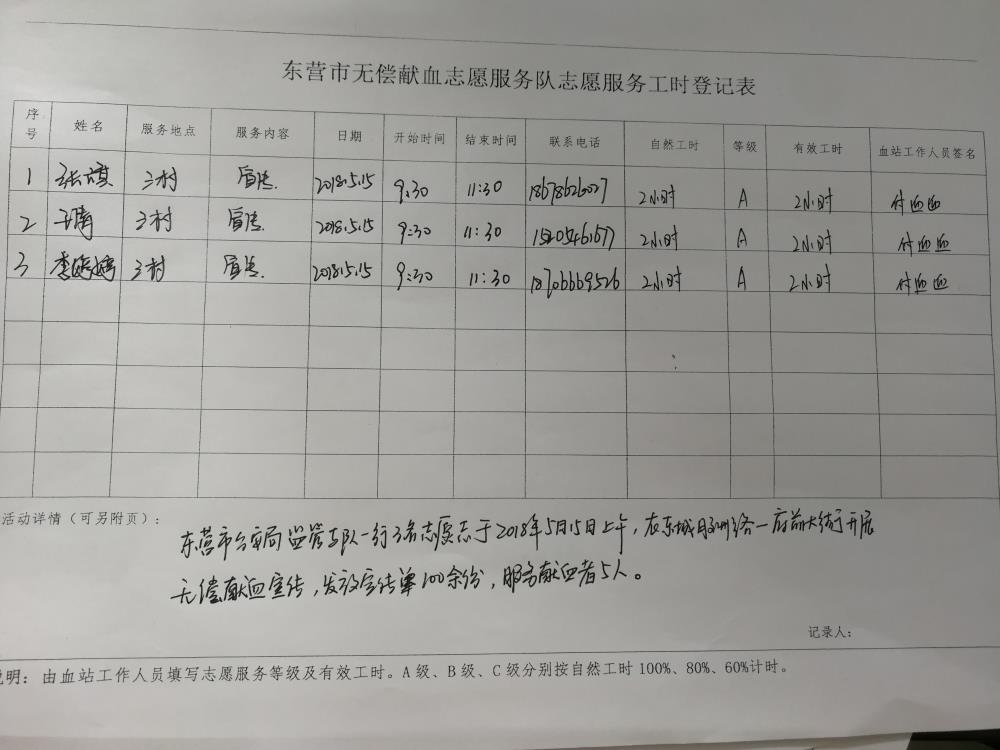 东营市无偿献血志愿服务队志愿服务工时登记表
序号 姓名 服务地点 服务内容 日期 开始时间 结束时间 联系电话 自然工时 等级 有效工时 血站工作人员签名
1 张祺 三村 宣传. 2018.5.15 9:30 11:30 18678626027 2小时 A 2小时
2 王倩 三村 宣传. 2018.5.15 9:30 11:30 2小时 A 2小时
3 李婷婷 三村 宣传. 2018.5.15 9:30 11:30 18706669526 2小时 A 2小时
活动详情（可另附页）：
东营市公安局监管支队一行3名志愿者于2018年5月15日上午，在东城 府前大街开展
无偿献血宣传，发放宣传单100余份，服务献血者5人。
记录人：
说明：由血站工作人员填写志愿服务等级及有效工时。A级、B级、C级分别按自然工时100%、80%、60%计时。